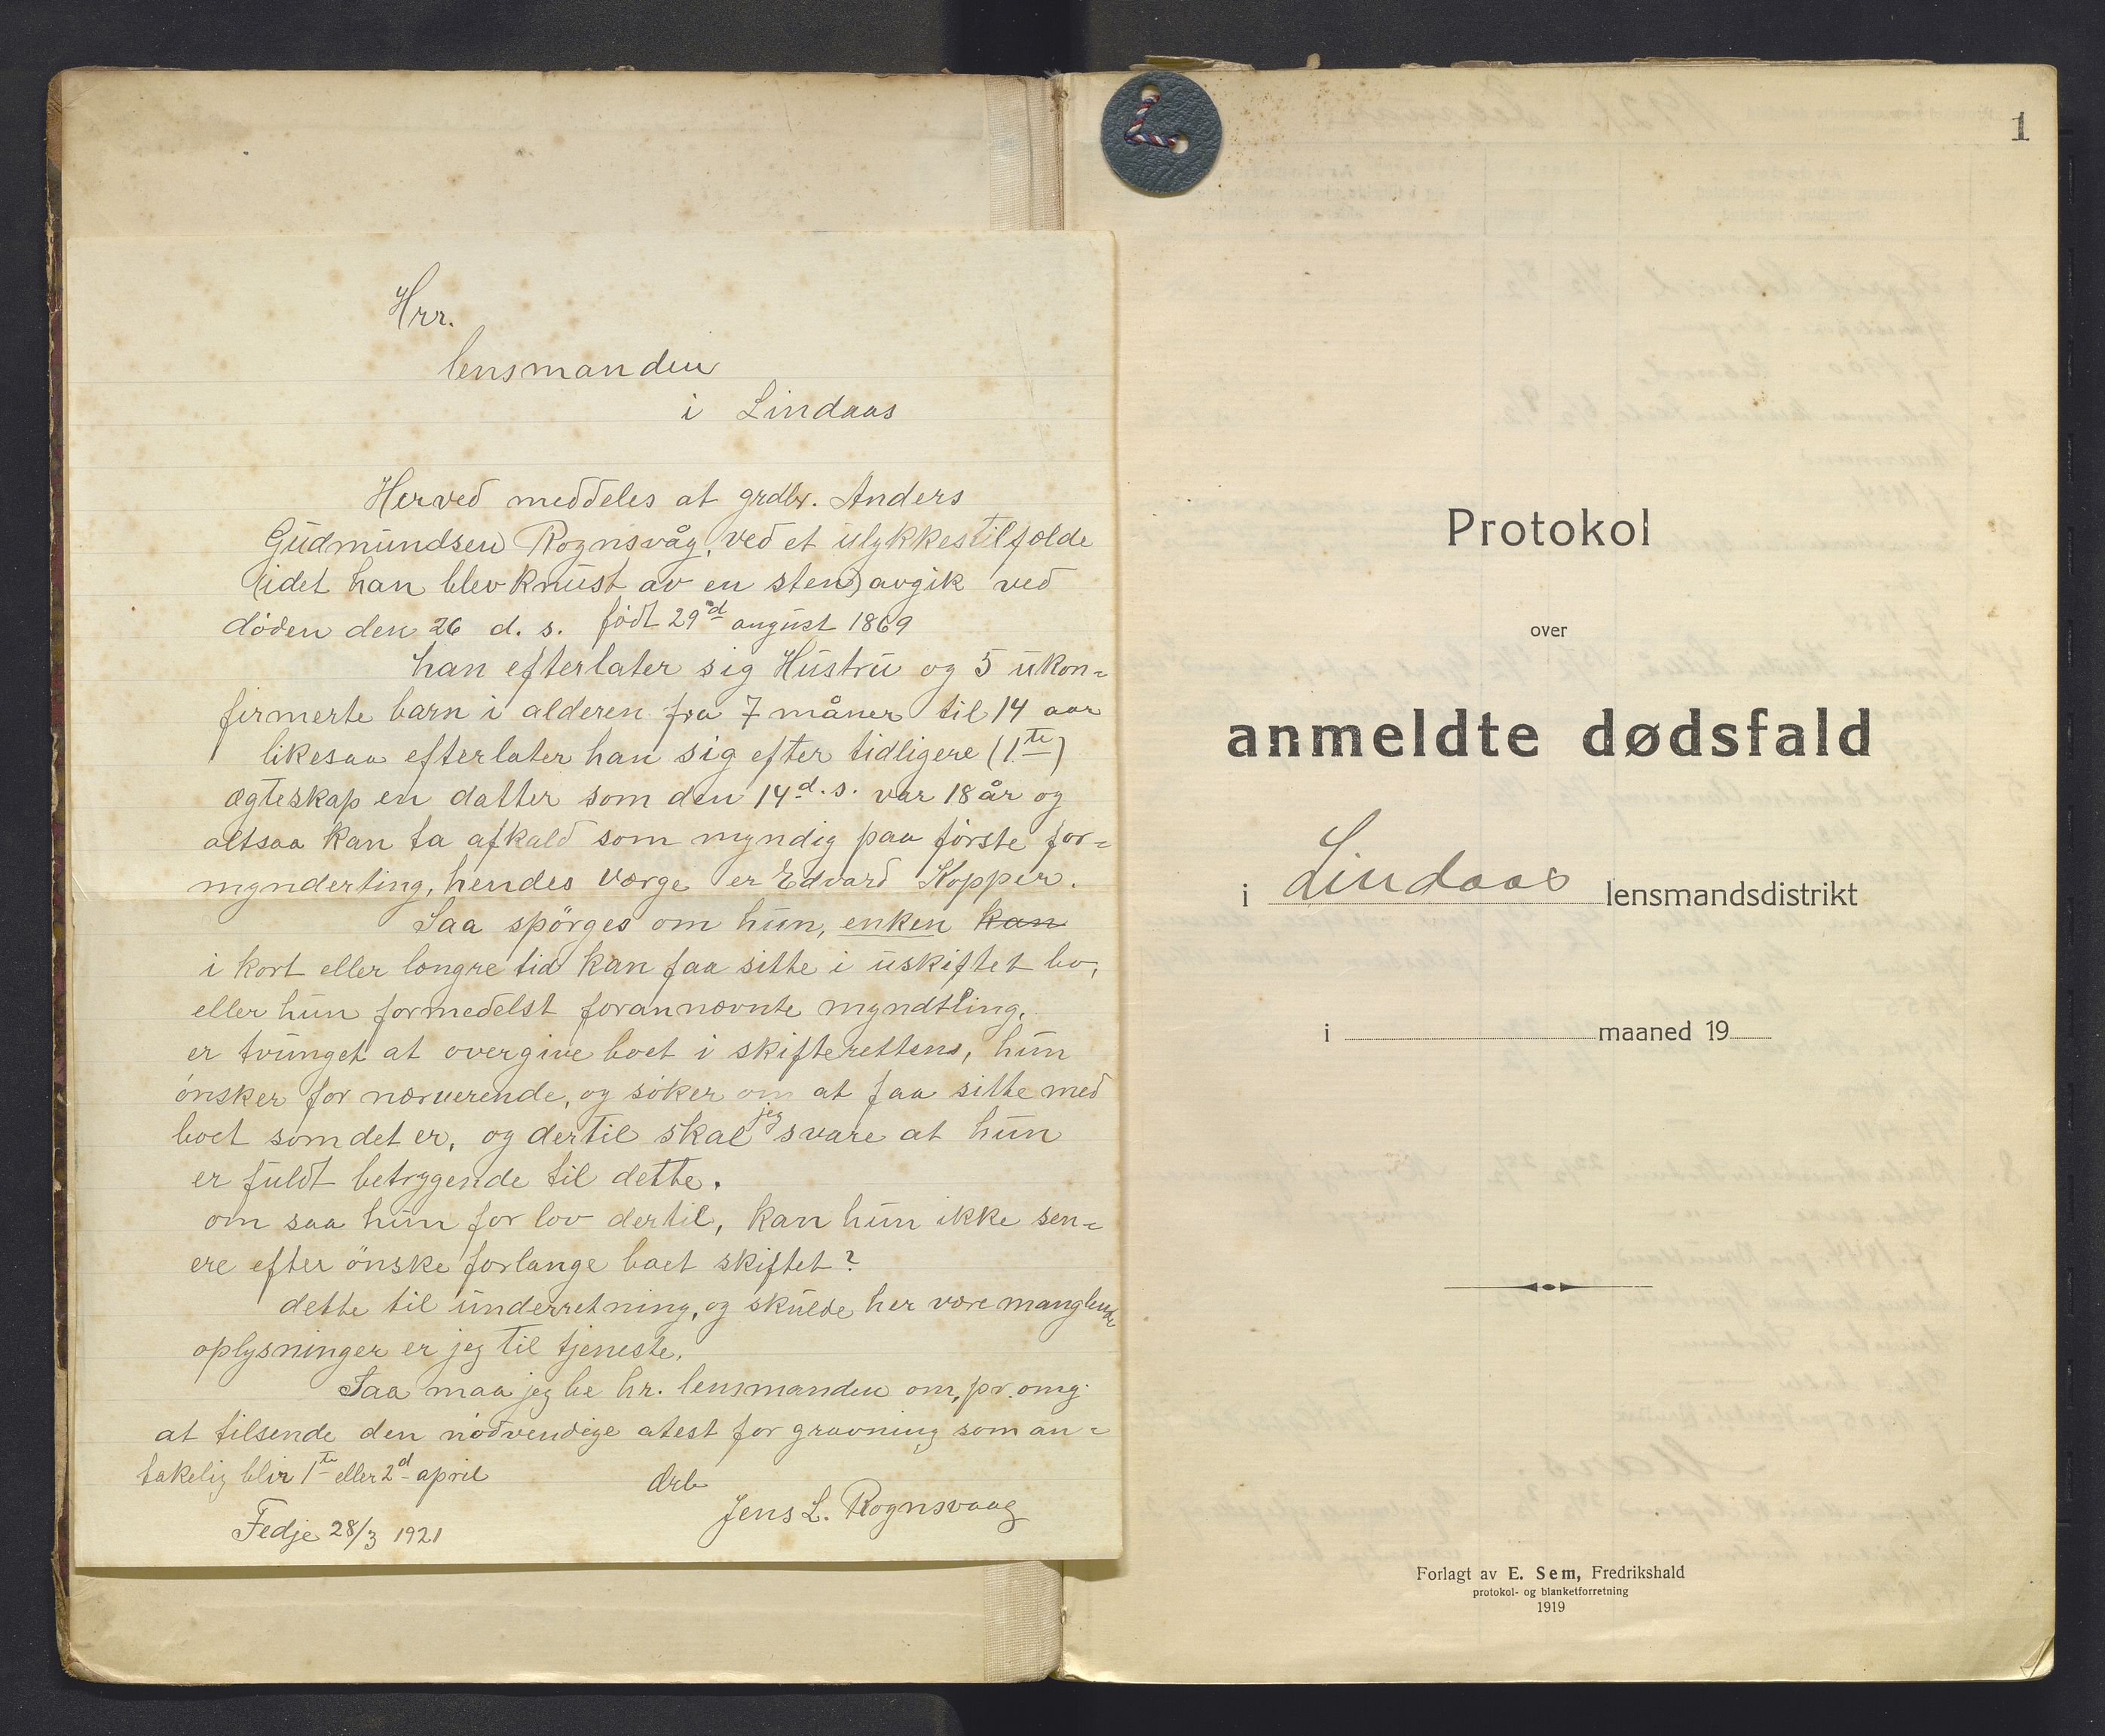 Hrr.
lensmanden
i Lindaas
Herved meddeles at grdbr. Anders
Gudmundsen Rognsvåg, ved et ulykkestilfælde
(idet han blev knust av en sten) avgik ved
döden den 26 d. s. födt 29d august 1869
han efterlater sig Hustru og 5 ukon=
firmerte barn i alderen fra 7 måner til 14 aar
likesaa efterlater han sig efter tidligere (1te)
ægteskap en datter som den 14d. s. var 18 år og
altsaa kan ta afkald som myndig paa förste for=
mynderting, hendes værge er Edvard Kopper.
Saa spörges om hun, enken kan
i kort eller længre tid kan faa sitte i uskiftet bo,
eller hun formedelst forannævnte myndtling,
er tvunget at overgive boet i skifterettens, hun
önsker for nærverende, og söker om at faa sitte med
boet som det er, og dertil skal jeg svare at hun
er fuldt betryggende til dette.
om saa hun for lov dertil, kan hun ikke sen=
ere efter önske forlange boet skiftet?
dette til underretning, og skulde her være manglende
oplysninger er jeg til tjeneste.
Saa maa jeg be hr. lensmanden om, pr. omg.
at tilsende den nödvendige atest for gravning som an=
takelig blir 1te eller 2d april
Ærb
Jens L. Rognsvaag
Fedje 28/3 1921
1
Protokol
over
anmeldte dødsfald
i Lindaas lensmandsdistrikt
i maaned 19
Forlagt av E. Sem, Fredrikshald
protokol- og blanketforretning
1919